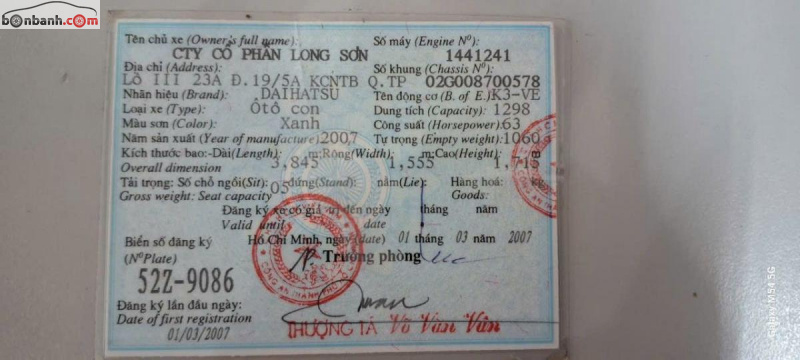 bonbanh.com
Tên chủ xe (Owner's full name): Số máy (Engine Nº):
CTY CỔ PHẦN LONG SƠN 1441241
Địa chỉ (Address): Số khung (Chassis Nº):
Lô III 23A Đ.19/5A KCNTB Q.TP 02G008700578
Nhãn hiệu (Brand): DAIHATSU Tên động cơ (B. of E.) K3-VE
Loại xe (Type): Ôtô con Dung tích (Capacity): 1298
Màu sơn (Color): Xanh Công suất (Horsepower): 63
Năm sản xuất (Year of manufacture) 2007 Tự trọng (Empty weight): 1060
Kích thước bao:-Dài(Length): m;Rộng(Width): m;Cao(Height): m
Overall dimension 3,845 1,555 1,715
Tải trọng: Số chỗ ngồi(Sit): 05 đứng(Stand): nằm(Lie): Hàng hoá:
Gross weight: Seat capacity Goods:
Đăng ký xe có giá trị đến ngày tháng năm
Valid until date
Biển số đăng ký Hồ Chí Minh, ngày (date) 01 tháng 03 năm 2007
(NºPlate) Trưởng phòng
52Z-9086
CÔNG AN THÀNH PHỐ
Đăng ký lần đầu ngày:
Date of first registration
01/03/2007
THƯỢNG TÁ Võ Văn Vân
Galaxy M34 5G